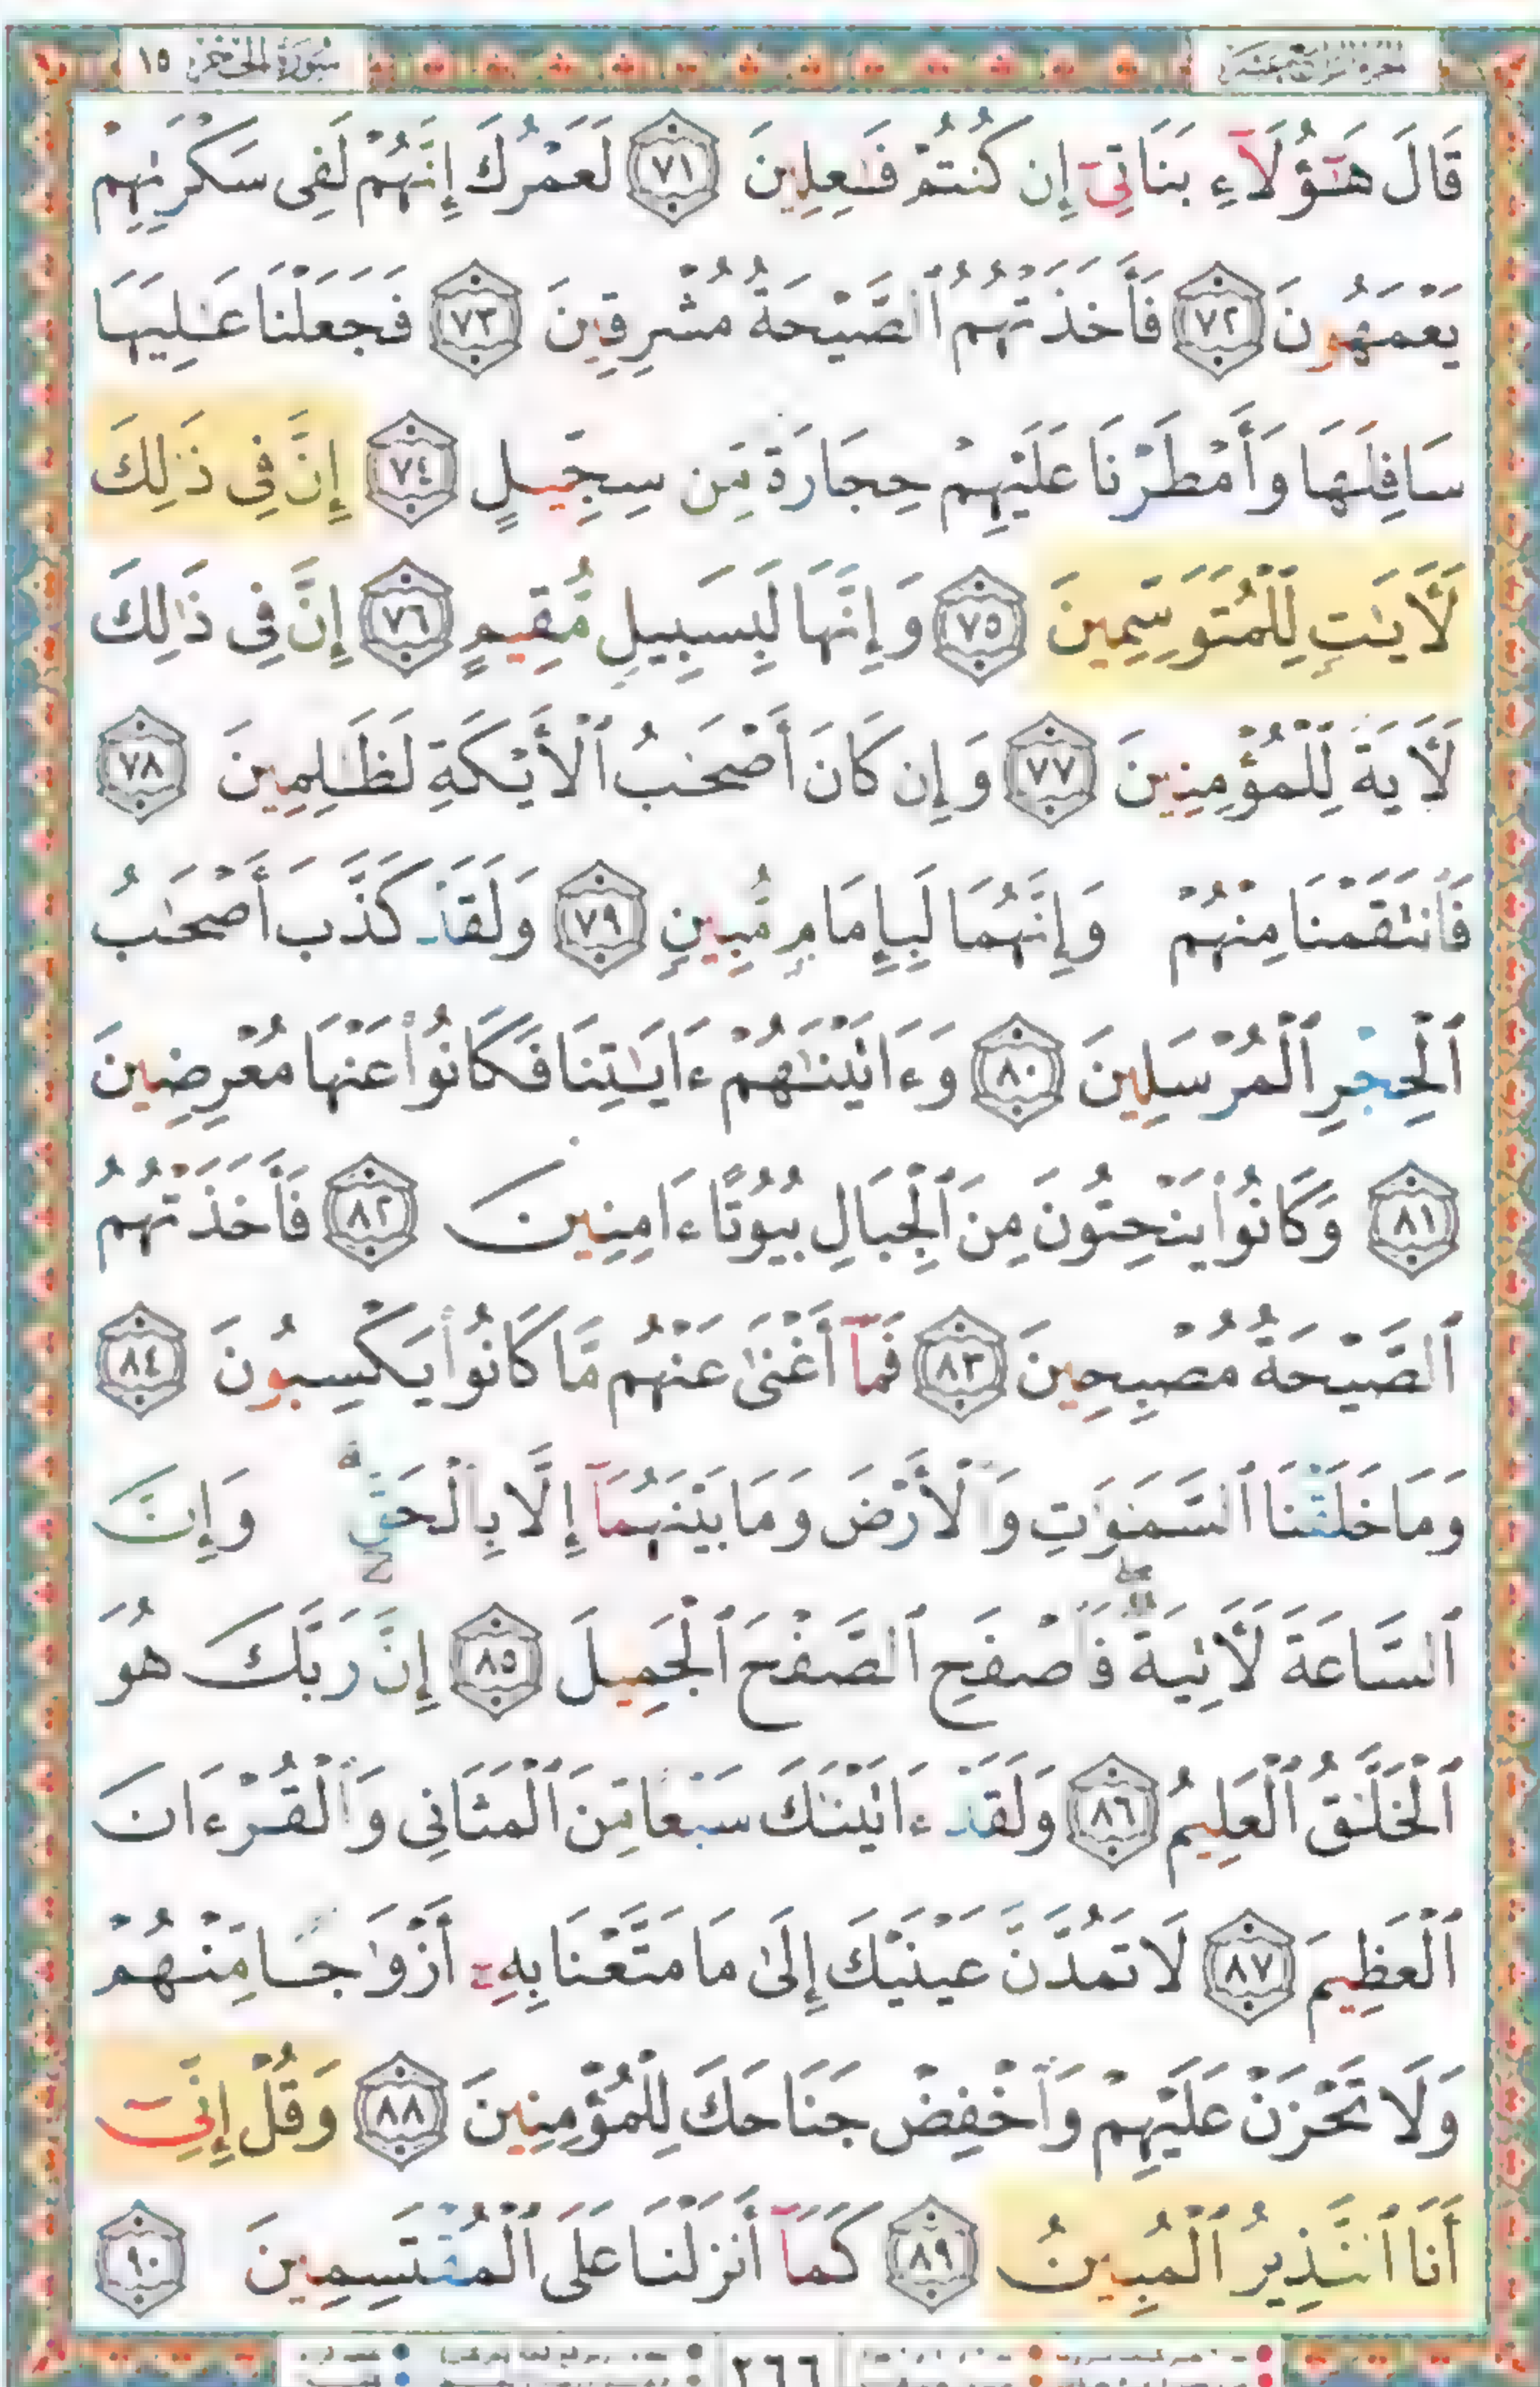 سُورَةُ الحِجْر ١٥
قَالَ هَـٰٓؤُلَآءِ بَنَاتِىٓ إِن كُنتُمْ فَـٰعِلِينَ ٧١ لَعَمْرُكَ إِنَّهُمْ لَفِى سَكْرَتِهِمْ
يَعْمَهُونَ ٧٢ فَأَخَذَتْهُمُ ٱلصَّيْحَةُ مُشْرِقِينَ ٧٣ فَجَعَلْنَا عَـٰلِيَهَا
سَافِلَهَا وَأَمْطَرْنَا عَلَيْهِمْ حِجَارَةً مِّن سِجِّيلٍ ٧٤ إِنَّ فِى ذَٰلِكَ
لَـَٔايَـٰتٍ لِّلْمُتَوَسِّمِينَ ٧٥ وَإِنَّهَا لَبِسَبِيلٍ مُّقِيمٍ ٧٦ إِنَّ فِى ذَٰلِكَ
لَـَٔايَةً لِّلْمُؤْمِنِينَ ٧٧ وَإِن كَانَ أَصْحَـٰبُ ٱلْأَيْكَةِ لَظَـٰلِمِينَ ٧٨
فَٱنتَقَمْنَا مِنْهُمْ وَإِنَّهُمَا لَبِإِمَامٍ مُّبِينٍ ٧٩ وَلَقَدْ كَذَّبَ أَصْحَـٰبُ
ٱلْحِجْرِ ٱلْمُرْسَلِينَ ٨٠ وَءَاتَيْنَـٰهُمْ ءَايَـٰتِنَا فَكَانُوا۟ عَنْهَا مُعْرِضِينَ
٨١ وَكَانُوا۟ يَنْحِتُونَ مِنَ ٱلْجِبَالِ بُيُوتًا ءَامِنِينَ ٨٢ فَأَخَذَتْهُمُ
ٱلصَّيْحَةُ مُصْبِحِينَ ٨٣ فَمَآ أَغْنَىٰ عَنْهُم مَّا كَانُوا۟ يَكْسِبُونَ ٨٤
وَمَا خَلَقْنَا ٱلسَّمَـٰوَٰتِ وَٱلْأَرْضَ وَمَا بَيْنَهُمَآ إِلَّا بِٱلْحَقِّ ۗ وَإِنَّ
ٱلسَّاعَةَ لَـَٔاتِيَةٌ ۖ فَٱصْفَحِ ٱلصَّفْحَ ٱلْجَمِيلَ ٨٥ إِنَّ رَبَّكَ هُوَ
ٱلْخَلَّـٰقُ ٱلْعَلِيمُ ٨٦ وَلَقَدْ ءَاتَيْنَـٰكَ سَبْعًا مِّنَ ٱلْمَثَانِى وَٱلْقُرْءَانَ
ٱلْعَظِيمَ ٨٧ لَا تَمُدَّنَّ عَيْنَيْكَ إِلَىٰ مَا مَتَّعْنَا بِهِۦٓ أَزْوَٰجًا مِّنْهُمْ
وَلَا تَحْزَنْ عَلَيْهِمْ وَٱخْفِضْ جَنَاحَكَ لِلْمُؤْمِنِينَ ٨٨ وَقُلْ إِنِّىٓ
أَنَا ٱلنَّذِيرُ ٱلْمُبِينُ ٨٩ كَمَآ أَنزَلْنَا عَلَى ٱلْمُقْتَسِمِينَ ٩٠
٢٦٦